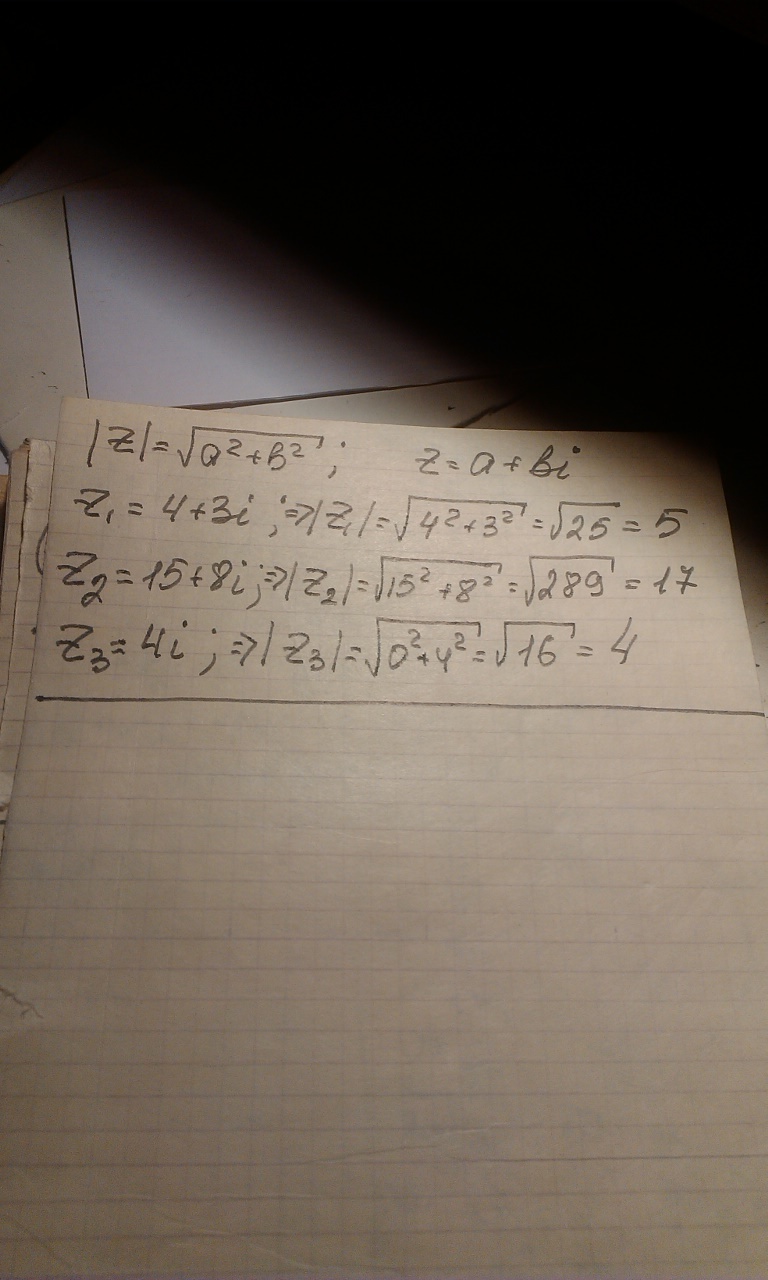 |z| = √(a² + b²) ; z = a + bi
z₁ = 4 + 3i ; ⇒ |z₁| = √(4² + 3²) = √25 = 5
z₂ = 15 + 8i ; ⇒ |z₂| = √(15² + 8²) = √289 = 17
z₃ = 4i ; ⇒ |z₃| = √(0² + 4²) = √16 = 4